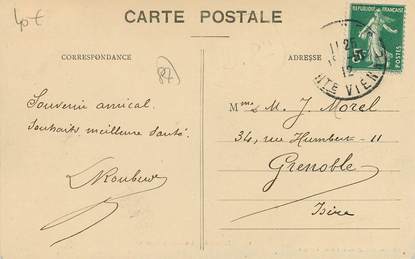 40€
CARTE POSTALE
CORRESPONDANCE
ADRESSE
(87)
Souvenir amical.
Souhaits meilleure santé.
Mme & M. J. Morel
34, rue Humbert-II
Grenoble
Isère
5c
POSTES
12
HTE VIENNE